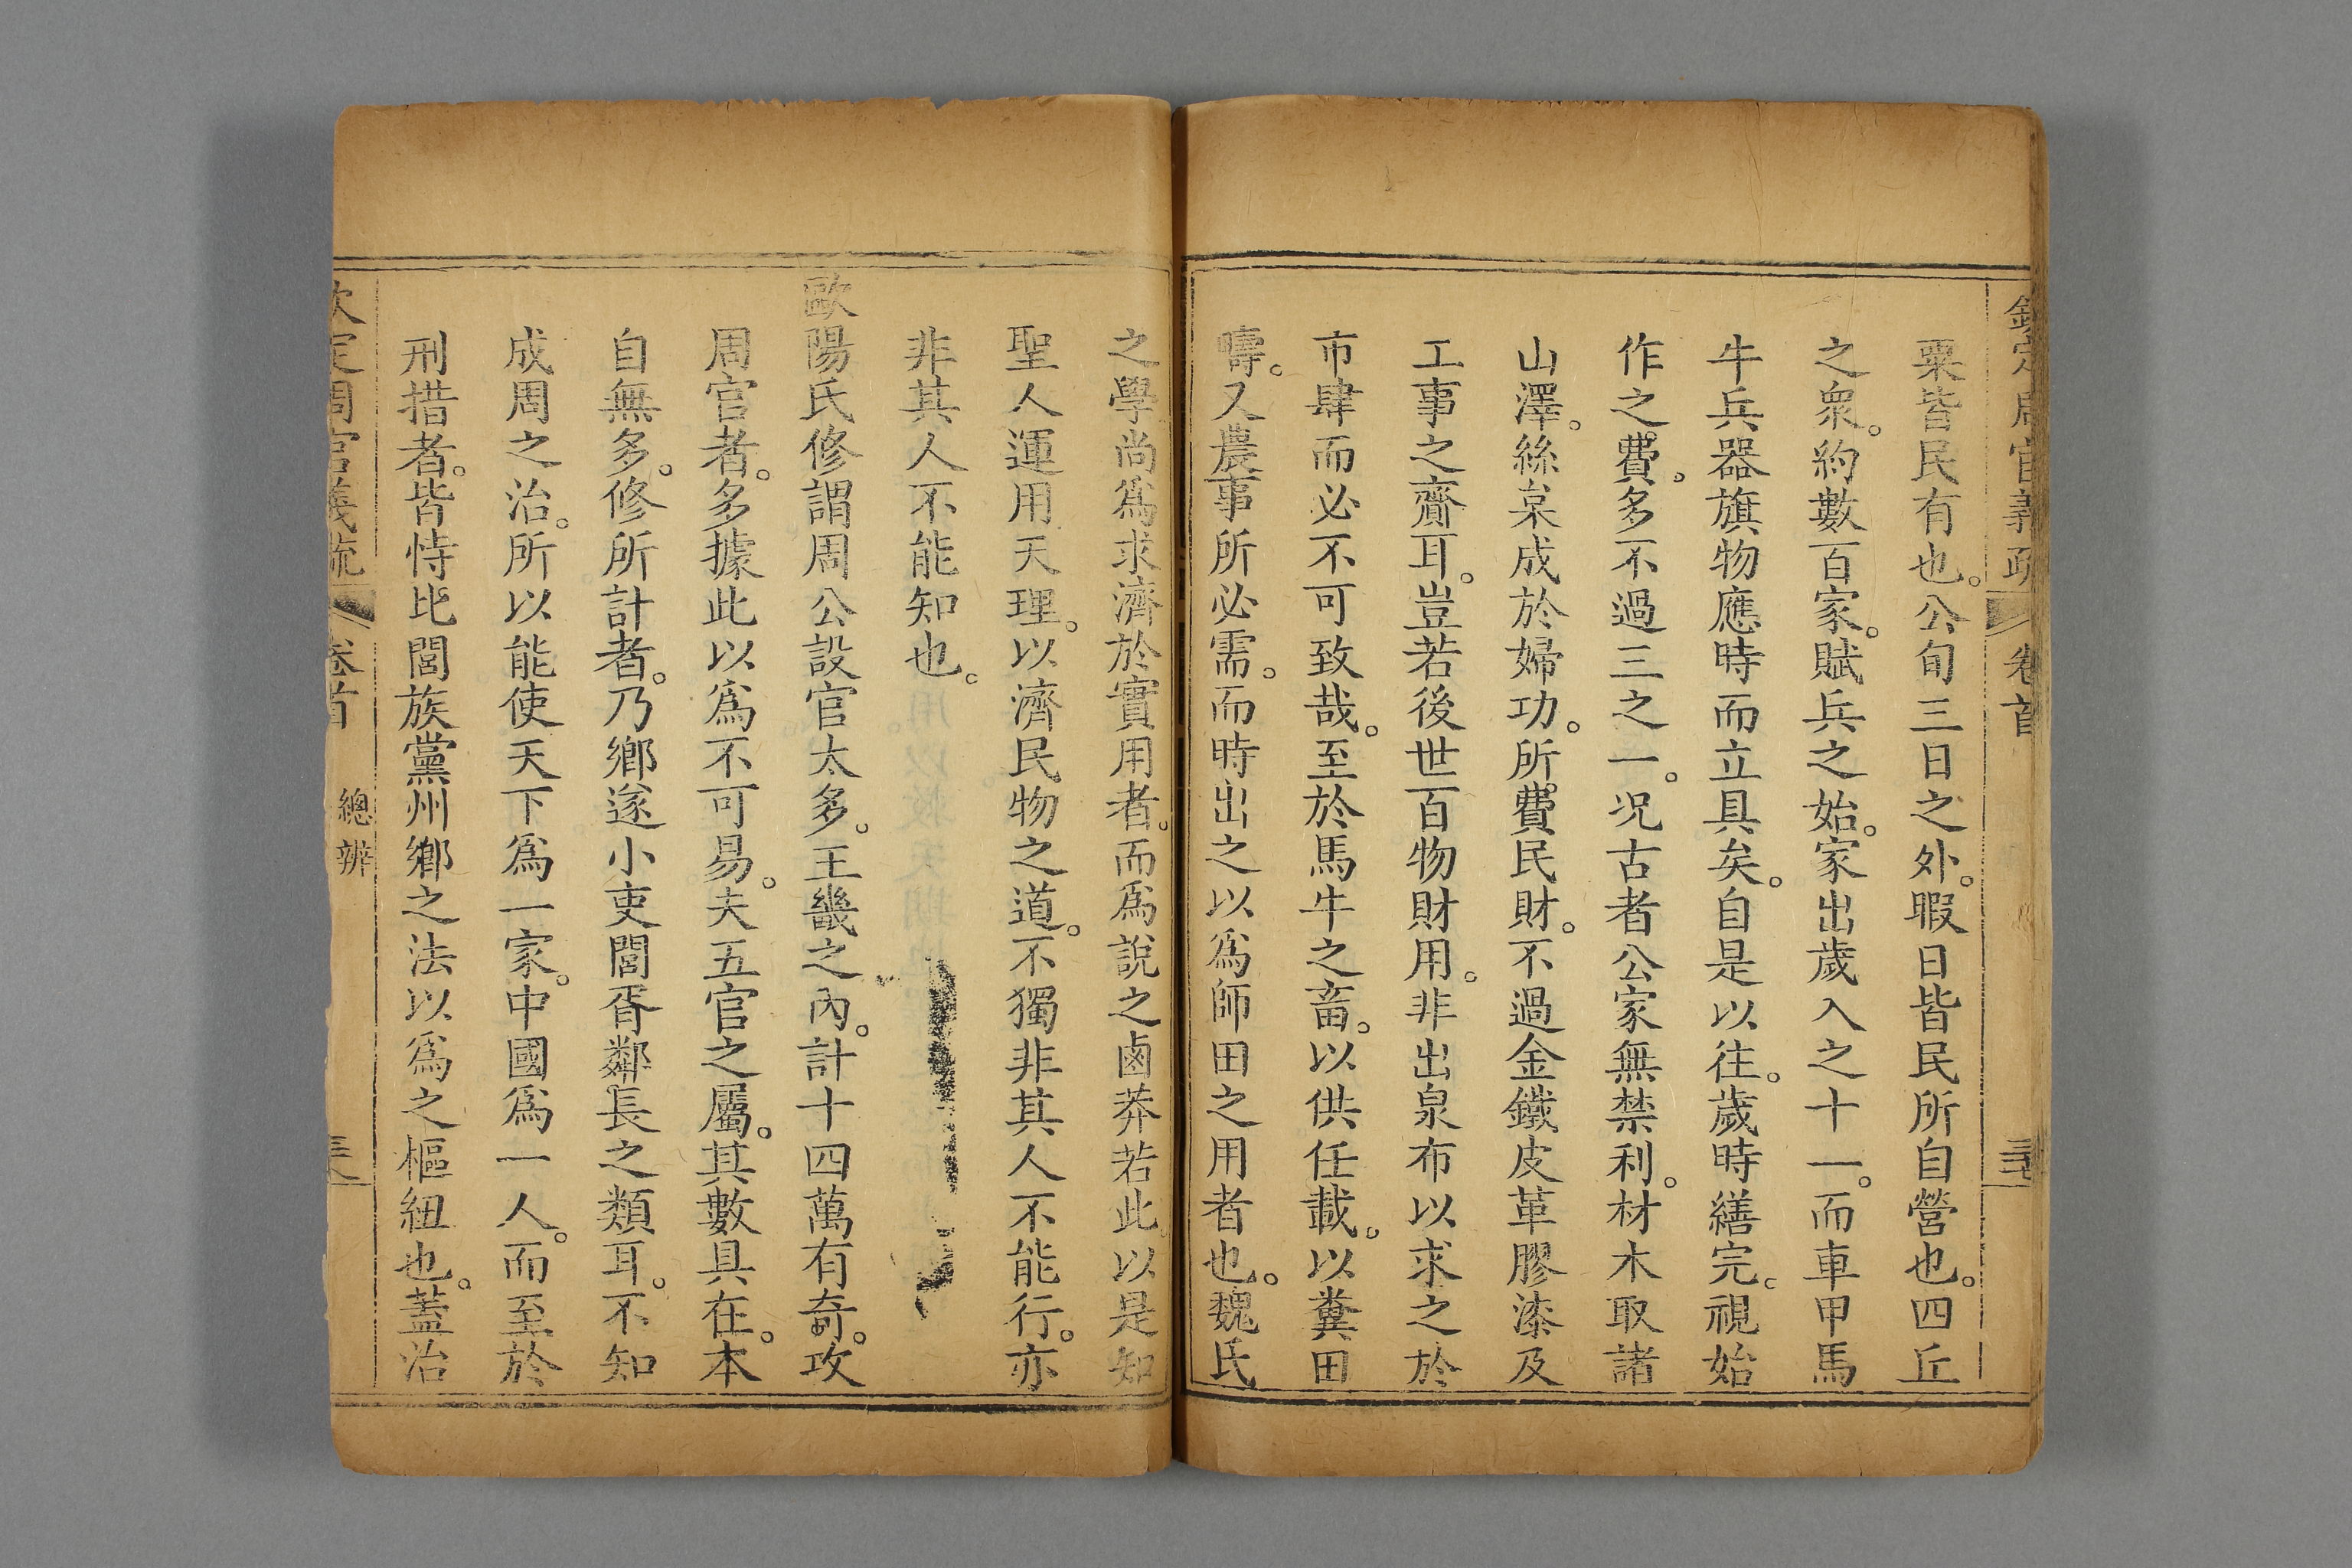 欽定周官義疏 卷首
粟皆民有也。公旬三日之外。暇日皆民所自營也。四丘
之衆。約數百家。賦兵之始。家出歲入之十一。而車甲馬
牛兵器旗物應時而立具矣。自是以往。歲時繕完。視始
作之費。多不過三之一。况古者公家無禁利。材木取諸
山澤。絲枲成於婦功。所費民財。不過金鐵皮革膠漆及
工事之齎耳。豈若後世百物財用。非出泉布以求之於
市肆而必不可致哉。至於馬牛之畜。以供任載。以糞田
疇。又農事所必需。而時出之以爲師田之用者也。魏氏
之學尚爲求濟於實用者。而爲說之鹵莽若此。以是知
聖人運用天理。以濟民物之道。不獨非其人不能行。亦
非其人不能知也。
歐陽氏修謂周公設官太多。王畿之內。計十四萬有奇。攻
周官者。多據此以爲不可易。夫五官之屬。其數具在。本
自無多。修所計者。乃鄉遂小吏閭胥鄰長之類耳。不知
成周之治。所以能使天下爲一家。中國爲一人。而至於
刑措者。皆恃比閭族黨州鄉之法以爲之樞紐也。蓋治
欽定周官義疏 卷首 總辨